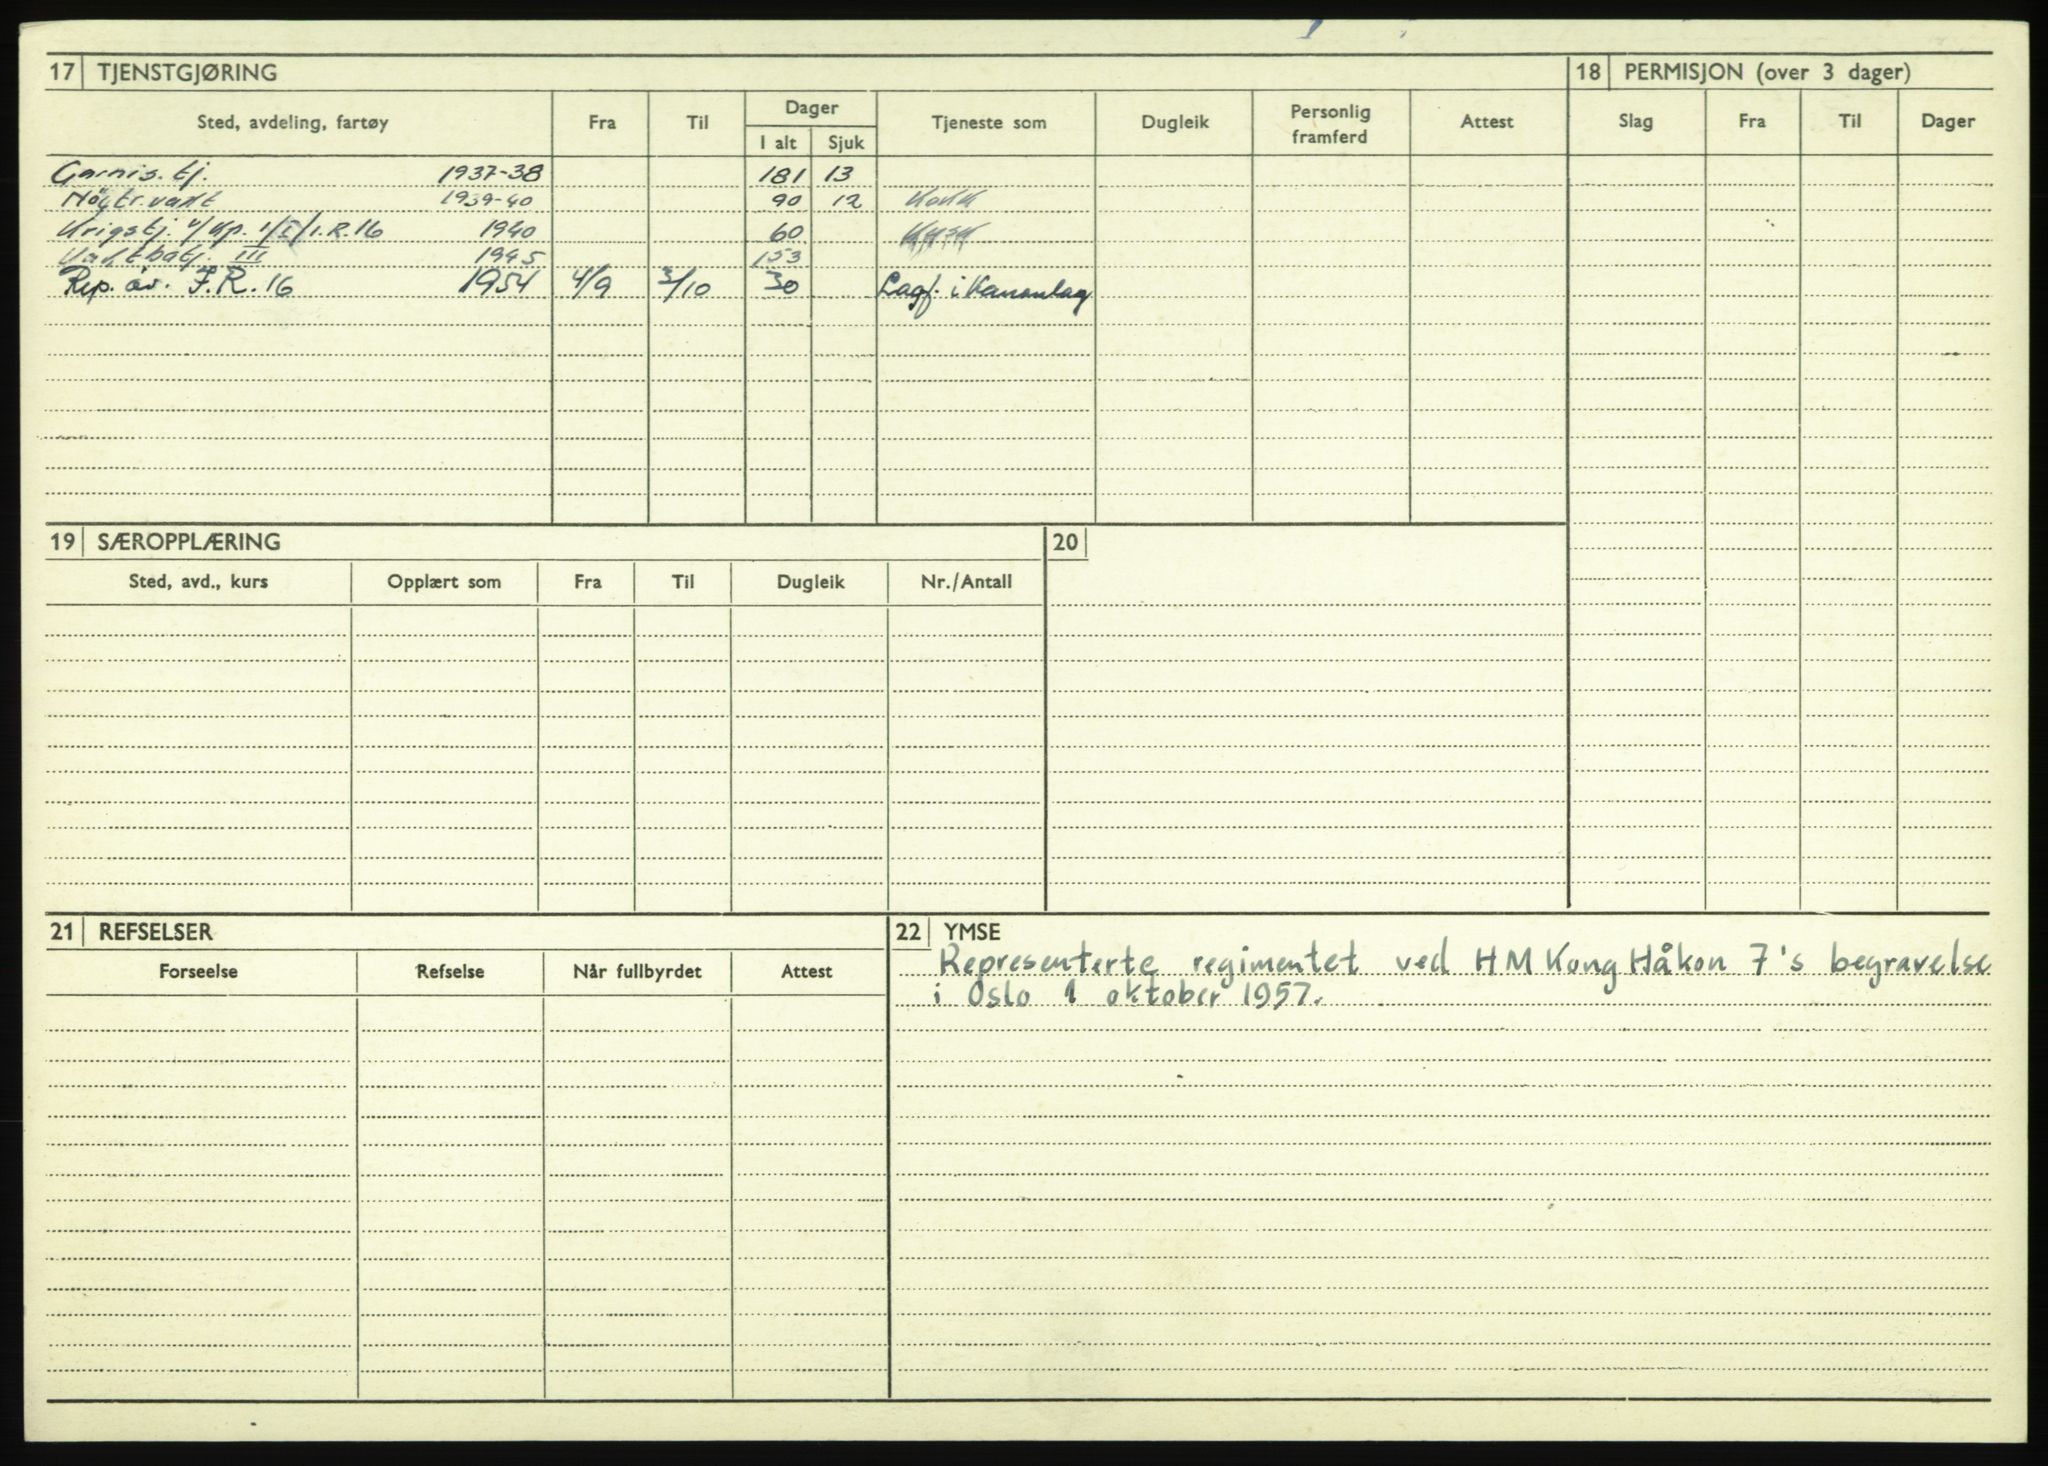 17 TJENSTGJØRING
Sted, avdeling, fartøy Fra Til Dager Tjeneste som Dugleik Personlig framferd Attest
I alt Sjuk
Garnis. tj. 1937-38 181 13
Nöytr. vakt 1939-40 90 12
Krigstj. v/ Kp. 1/I/I.R.16 1940 60
Vaktbatj. III 1945 153
Rep. øv. I.R.16 1954 4/9 3/10 30 Lagf. i Kanonlag
18 PERMISJON (over 3 dager)
Slag Fra Til Dager
19 SÆROPPLÆRING
Sted, avd., kurs Opplært som Fra Til Dugleik Nr./Antall
20
21 REFSELSER
Forseelse Refselse Når fullbyrdet Attest
22 YMSE
Representerte regimentet ved HM Kong Håkon 7's begravelse
i Oslo 1 oktober 1957.